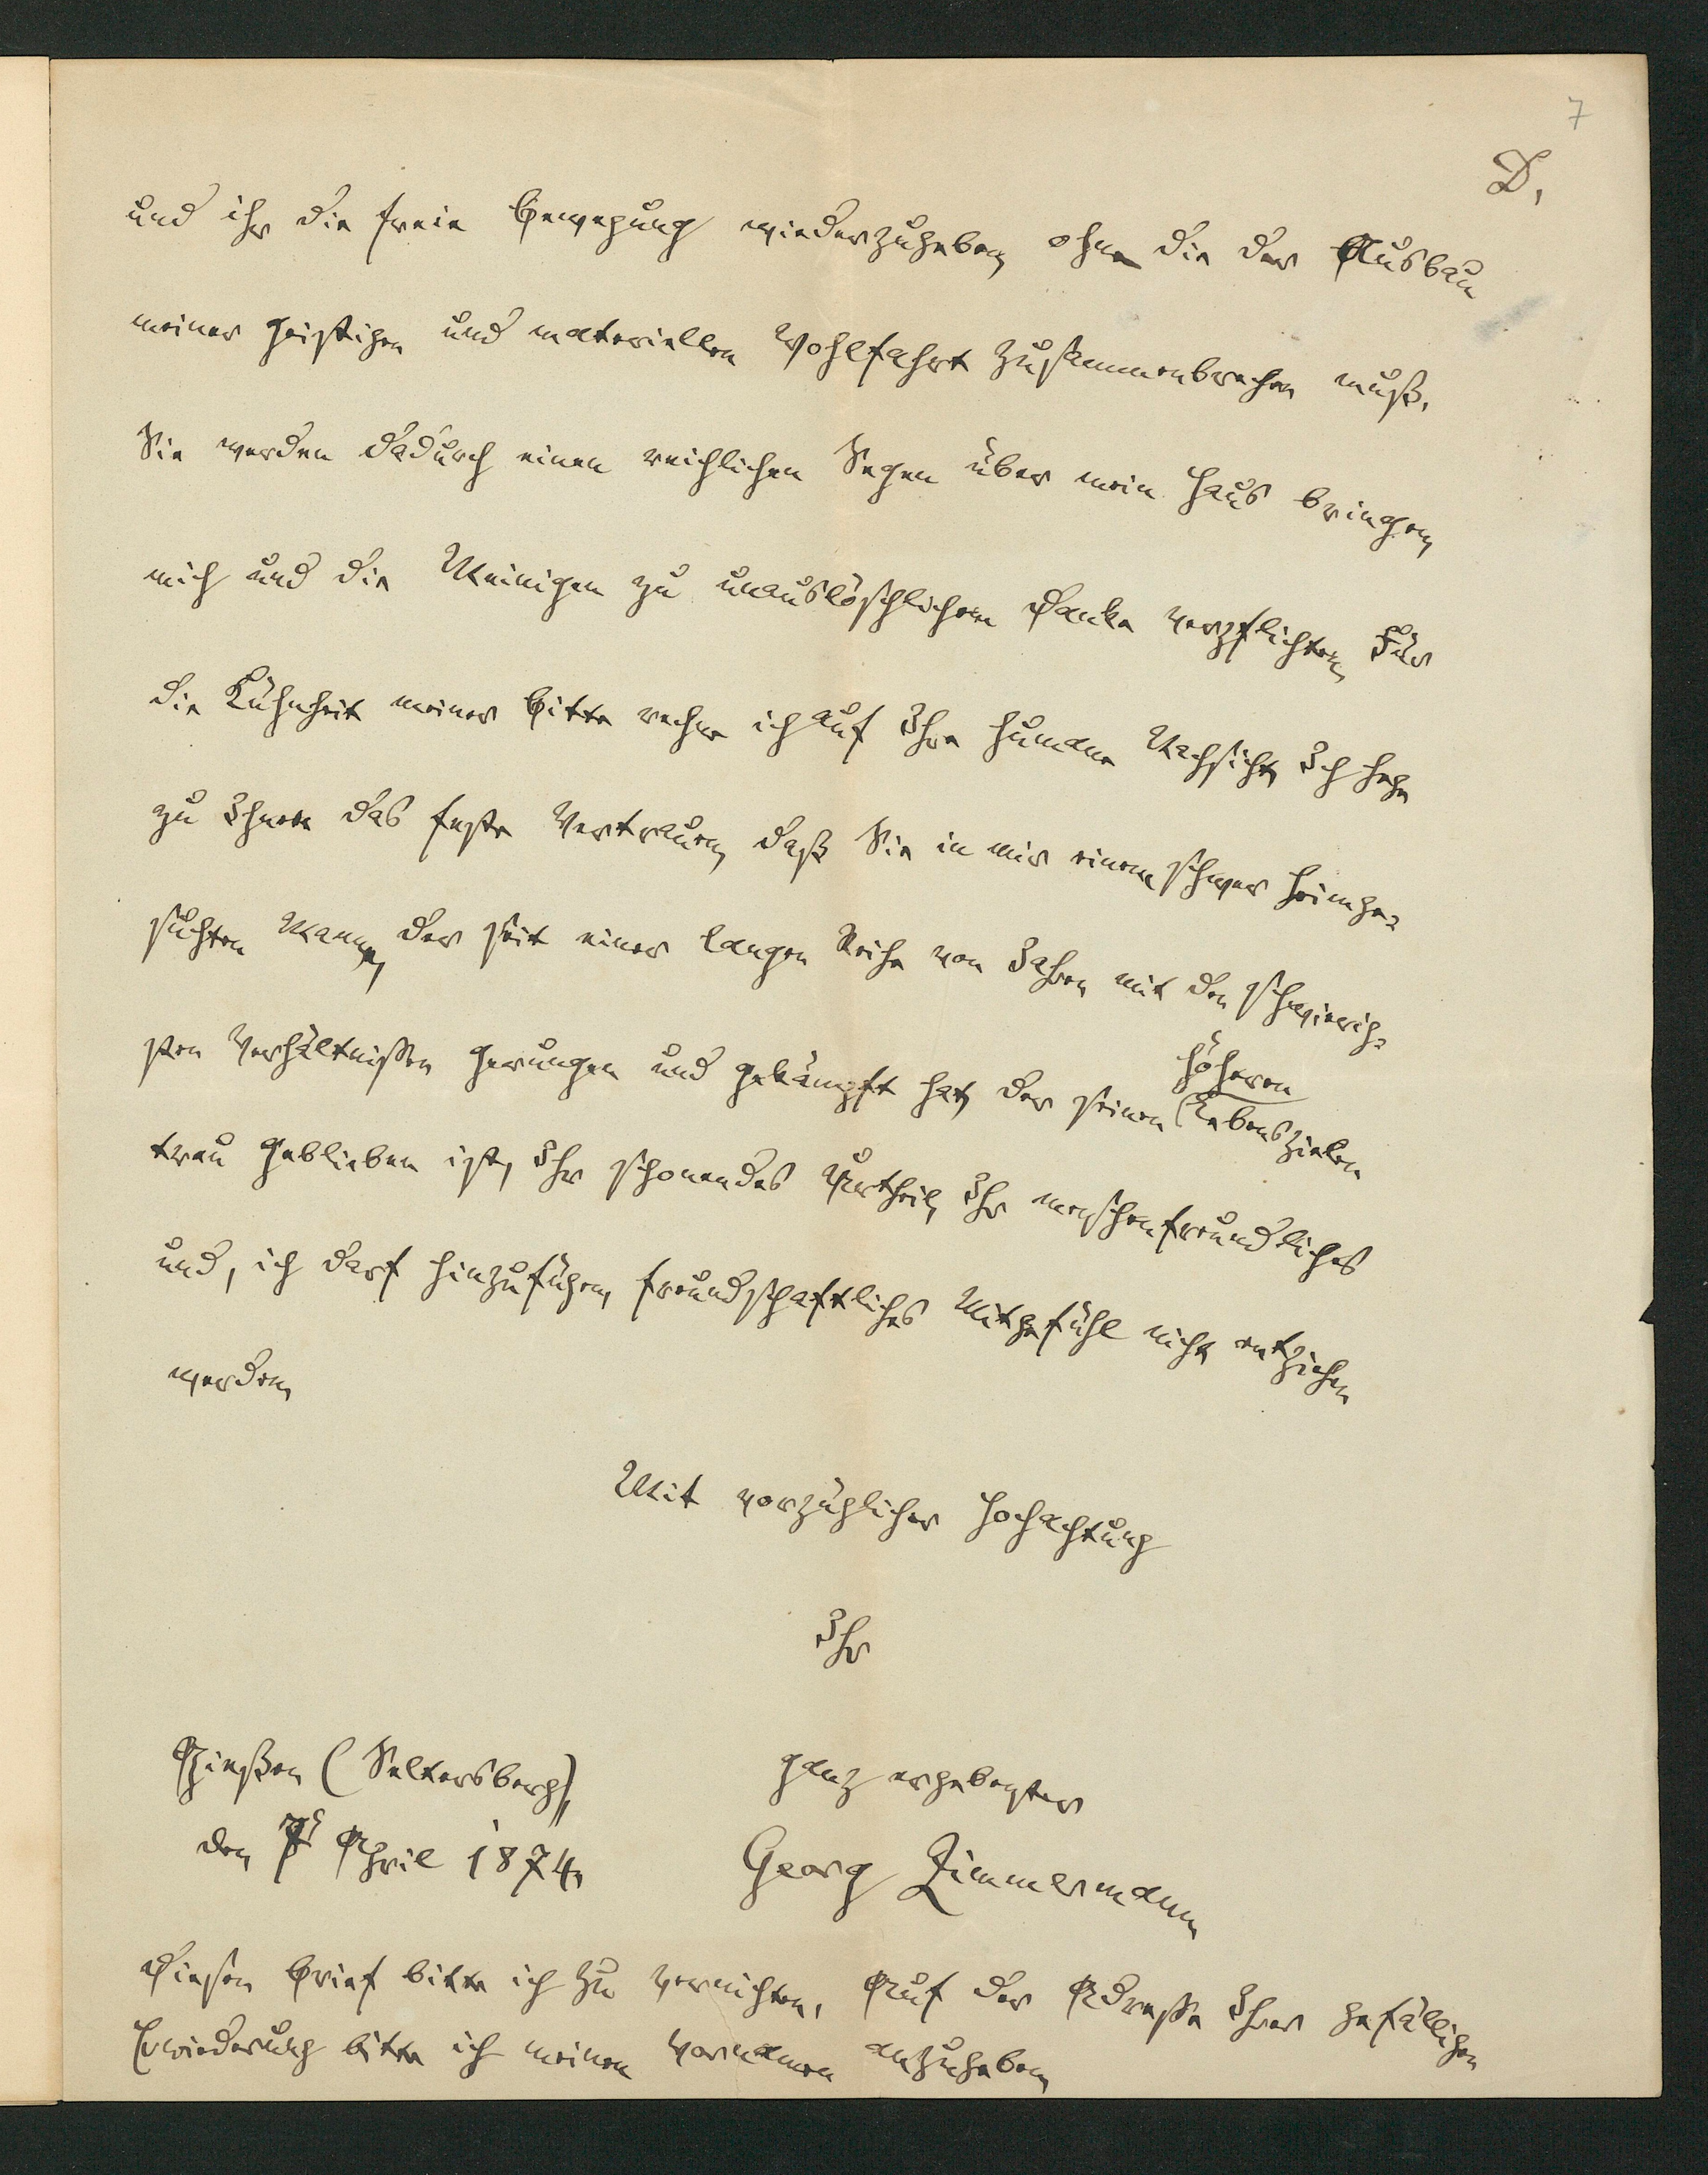 7
D.
und ihr die freie Bewegung wiederzugeben, ohne die der Ausbau
meiner geistigen und materiellen Wohlfahrt zusammenbrechen muß.
Sie werden dadurch einen reichlichen Segen über mein Haus bringen,
mich und die Meinigen zu unauslöschlichem Danke verpflichten. Für
die Kühnheit meiner Bitte rechne ich auf Ihre humane Nachsicht. Ich hege
zu Ihnen das feste Vertrauen, daß Sie in mir einem schwer heimge-
suchten Manne, der seit einer langen Reihe von Jahren mit den schwierig-
sten Verhältnißen gerungen und gekämpft hat, der seinen höheren Lebenszielen
treu geblieben ist, Ihr schonendes Urtheil, Ihr menschenfreundliches
und, ich darf hinzufügen, freundschaftliches Mitgefühl nicht entziehen
werden.
Mit vorzüglicher Hochachtung
Ihr
Gießen (Seltersberg), ganz ergebenster
den 7. April 1874. Georg Zimmermann
Diesen Brief bitte ich zu vernichten. Auf der Adresse Ihrer gefälligen
Erwiederung bitte ich meinen Vornamen anzugeben.